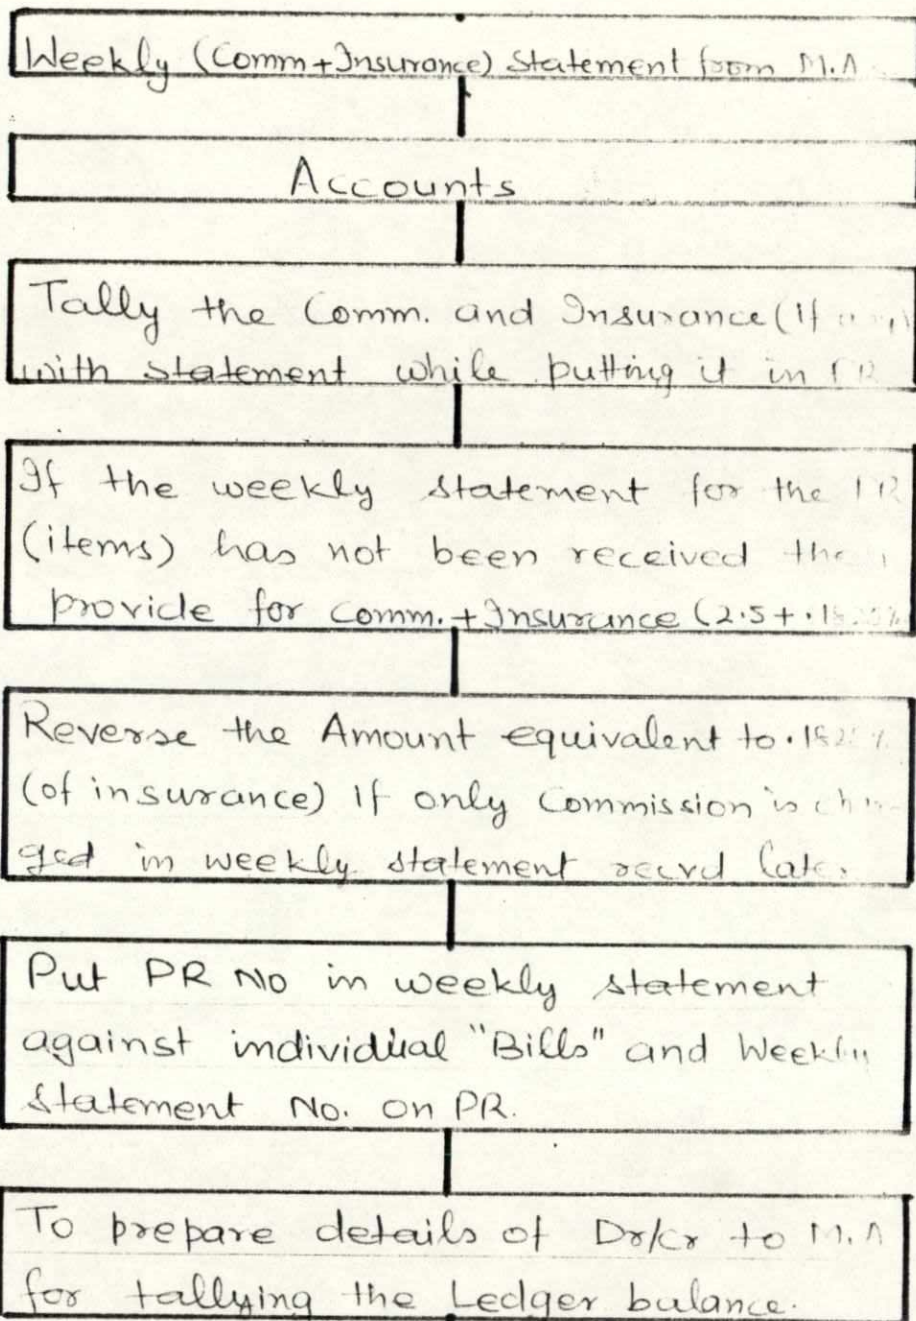 Weekly (Comm+Insurance) Statement from M.A
Accounts
Tally the Comm. and Insurance (if any)
with statement while putting it in PR
If the weekly statement for the PR
(items) has not been received then
provide for comm.+Insurance (2.5+
Reverse the Amount equivalent to
(of insurance) if only commission is char-
ged in weekly statement recvd later
Put PR No in weekly statement
against individual "Bills" and Weekly
Statement No. on PR.
To prepare details of Dr/cr to M.A
for tallying the Ledger balance.